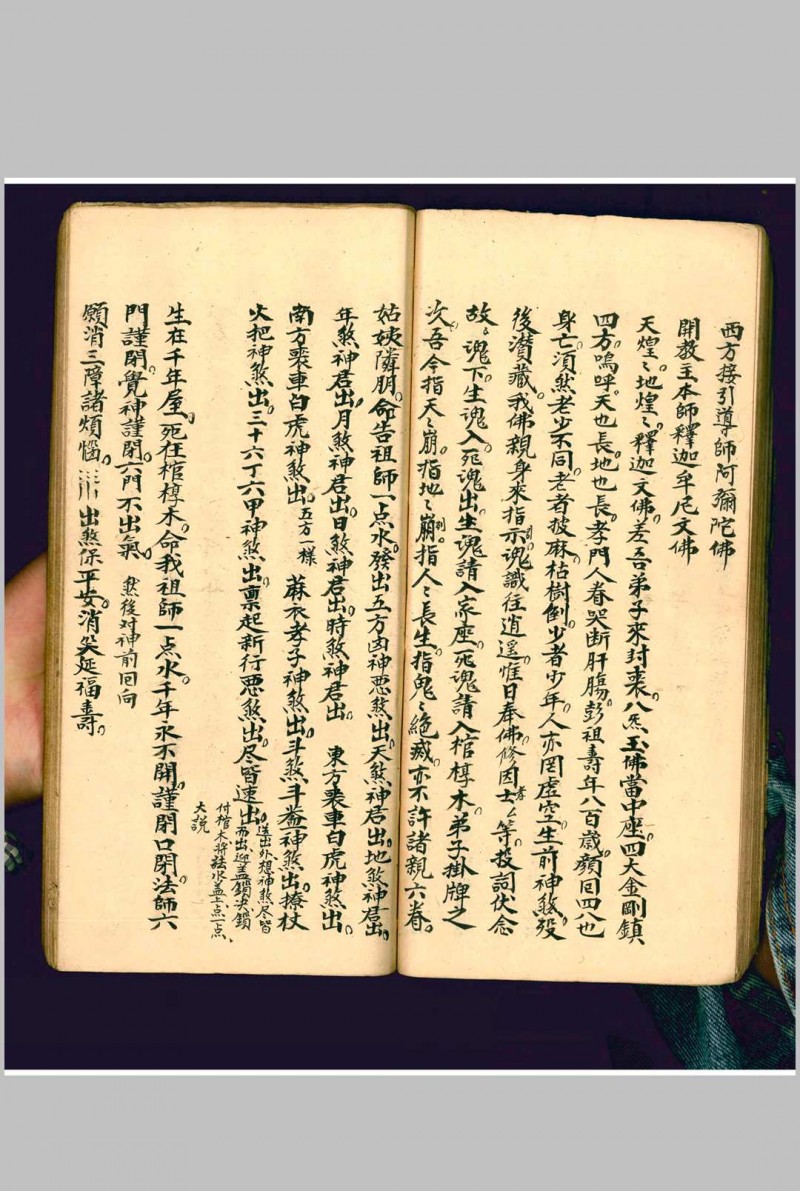 西方接引導師阿彌陀佛
開教主本師釋迦牟尼文佛
天煌〻地煌〻釋迦文佛差吾弟子來封喪八炁玉佛當中座四大金剛鎮
四方嗚呼天也長地也長孝門人眷哭断肝腸彭祖壽年八百歲顏回四八也
身亡湏然老少不同老者披麻枯樹倒少者少年人亦罔虛空生前神煞歿
後潛藏我佛親身來指示魂識往逍遥惟日奉佛修因孝士厶等投詞伏念
故〻魂下生魂入死魂出生魂請入家座死魂請入棺椁木弟子掛牌之
次吾今指天〻崩指地〻崩指人〻長生指鬼〻絶滅亦不許諸親六眷
姑姨隣朋命告祖師一点水發出五方凶神惡煞出天煞神君出地煞神君出
年煞神君出月煞神君出日煞神君出時煞神君出 東方喪車白虎神煞出
南方喪車白虎神煞出五方一樣 蔴衣孝子神煞出斗煞斗盖神煞出撩杖
火把神煞出三十六丁六甲神煞出禀起新行惡煞出尽皆速出送出外想神煞尽皆
而出迎盖鎖尖鎖
付棺木將法水盖上点一点
大説
生在千年屋死在棺椁木命我祖師一点水千年永不開謹閉口閉法師六
門謹閉覺神謹閉六門不出氣 然後对神前回向
願消三障諸煩惱 出煞保平安消災延福壽